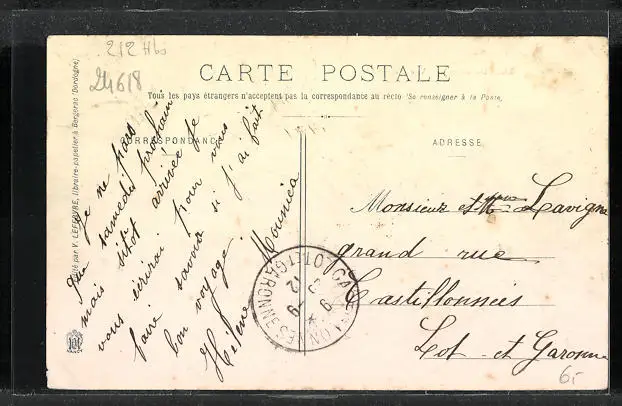 212 Hbs
24618
CARTE POSTALE
Tous les pays étrangers n'acceptent pas la correspondance au recto (Se renseigner à la Poste)
CORRESPONDANCE
ADRESSE
par V. LEFEBVRE, libraire-papetier à Bergerac (Dordogne)
Je ne pars
que samedi prochain
mais sitôt arrivée je
vous écrirai pour vous
faire savoir si j'ai fait
bon voyage.
Hélène
Monsieur et Mme Lavigne
grand rue
Castillonnès
Lot-et-Garonne
LOT-ET-GARONNE
6.-